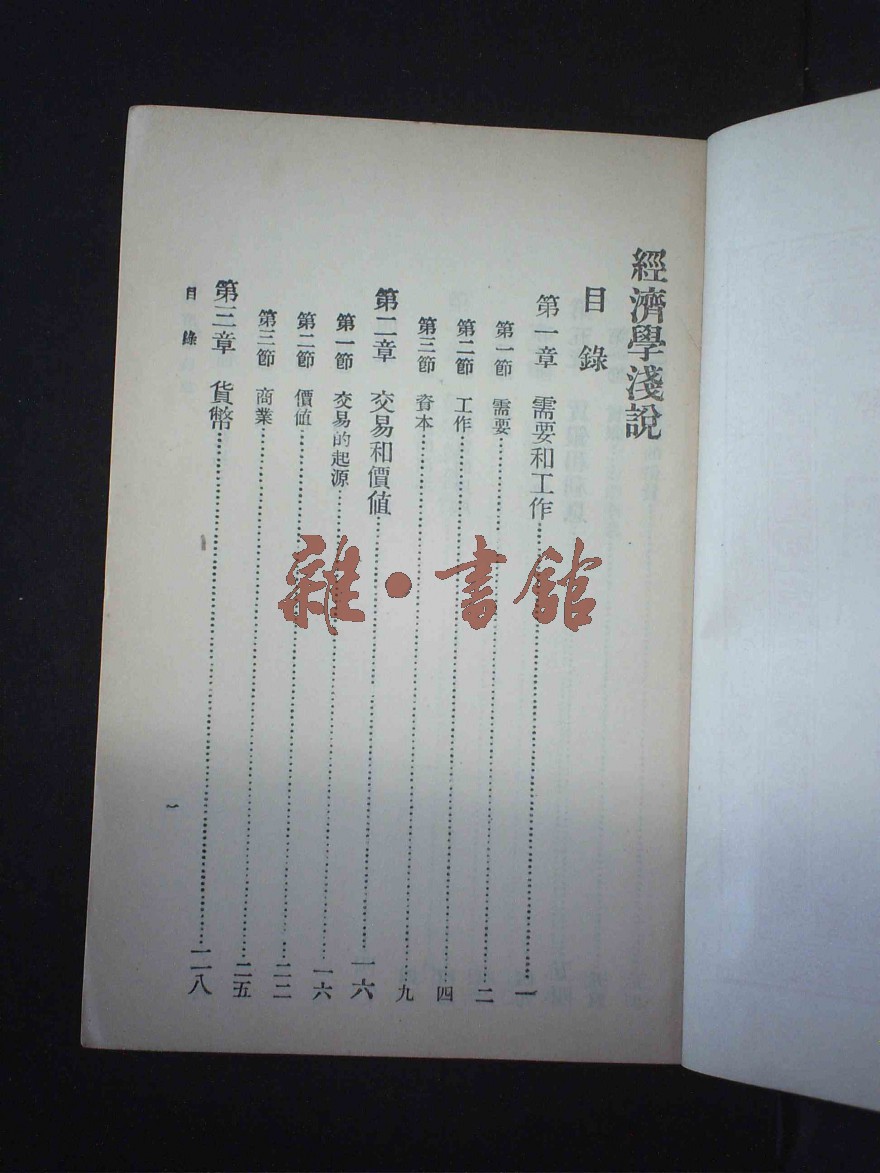 經濟學淺說
目錄
第一章 需要和工作……一
第一節 需要……二
第二節 工作……四
第三節 資本……九
第二章 交易和價值……一六
第一節 交易的起源……一六
第二節 價值……二二
第三節 商業……二五
第三章 貨幣……二八
目錄
一
雜·書館